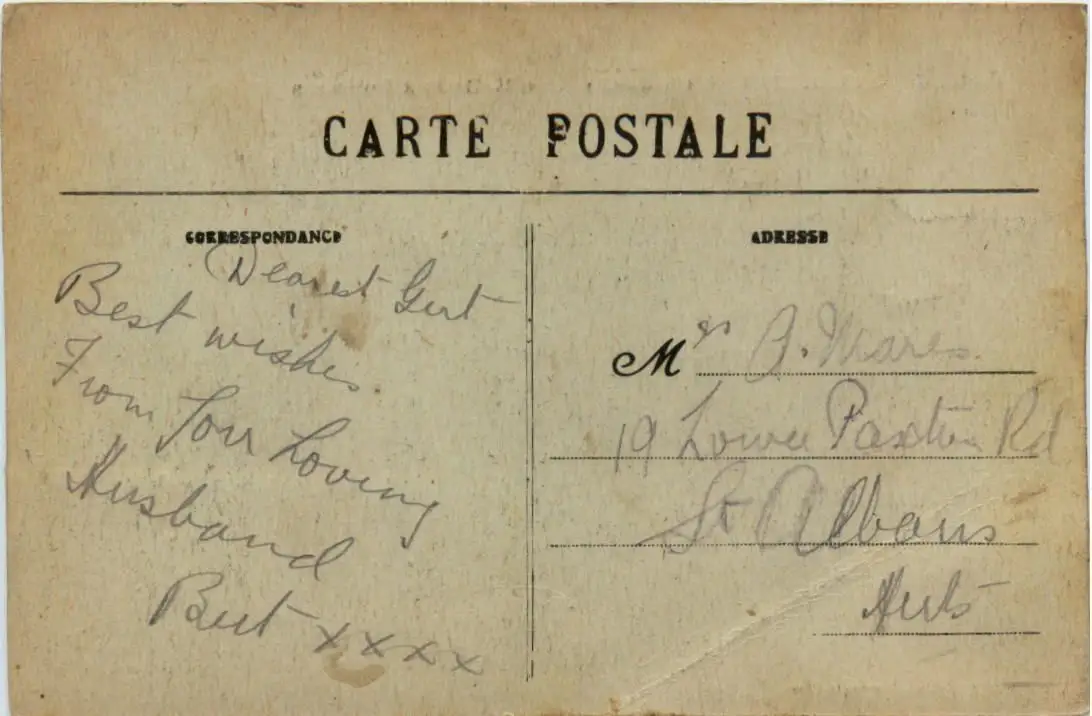 CARTE POSTALE
CORRESPONDANCE
Dearest Gert
Best wishes.
From Your Loving
Husband
Bert xxxx
ADRESSE
Mrs B. Mares.
19 Lower Paxton Rd
St Albans
Herts